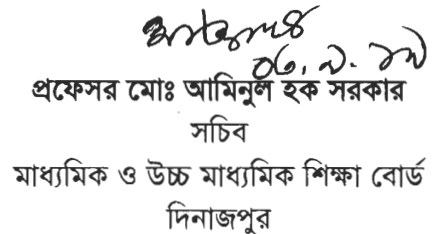 ০৩.৯.১৯
প্রফেসর মোঃ আমিনুল হক সরকার
সচিব
মাধ্যমিক ও উচ্চ মাধ্যমিক শিক্ষা বোর্ড
দিনাজপুর